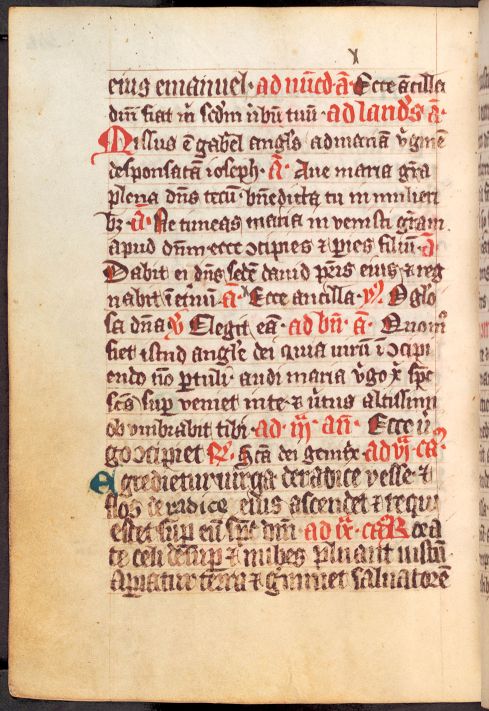 eius emanuel· ad nūcd̄ ā· Ecce ācilla
dn̄i fiat m̄ scd̄m v̄bū tuū· ad laudes ā·
Missus ē gabel angls ad mariā v̄ginē
desponsatā ioseph· ā· Aue maria grā
plena dn̄s tecū· bn̄edicta tu in mulieri
bꝫ· ā· Ne timeas maria in venisti grām
apud dn̄m ecce ɔcipies ⁊ pies filiū· ā
Dabit ei dn̄s sedē dauid pr̄is eius ⁊ reg
nabit ī et̄nū· ā· Ecce ancilla· O glo
sa dn̄a v̄ Elegit eā· ad bn̄· ā· Quom̄
fiet istud angle dei quia virū ī ɔcipi
endo nō ꝑtuli· audi maria v̄go x̄ spc̄
scs̄ suꝑ veniet in te· ⁊ v̄tus altissimi
ob umbrabit tibi· ad· iii· an̄· Ecce v̄
go ɔcipiet Sc̄a dei genitx· ad vi· ca
Agredietur uirga de radice yesse· ⁊
flos de radice eius ascendet ⁊ requi
escet suꝑ eū spc̄ dn̄i· ad ix· ca Rora
te celi desuꝑ ⁊ nubes pluant iustū
Apiatur terra ⁊ ḡminet saluatorē